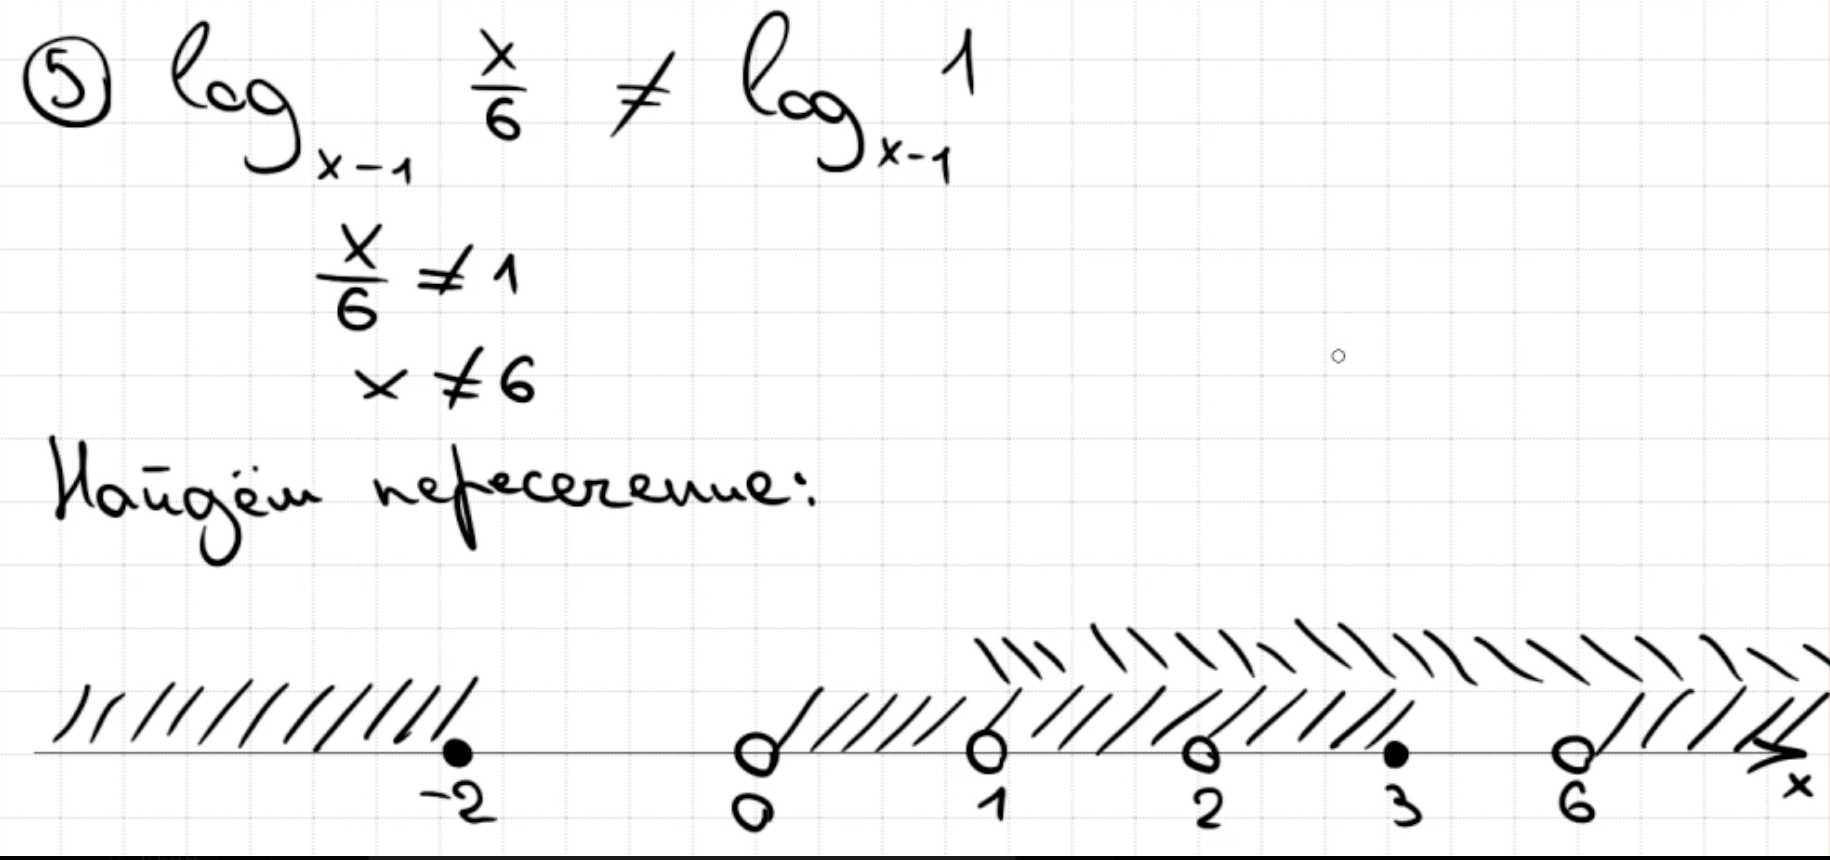 ⑤ log_{x-1} x/6 ≠ log_{x-1} 1
x/6 ≠ 1
x ≠ 6
Найдём пересечение:
-2 0 1 2 3 6 x